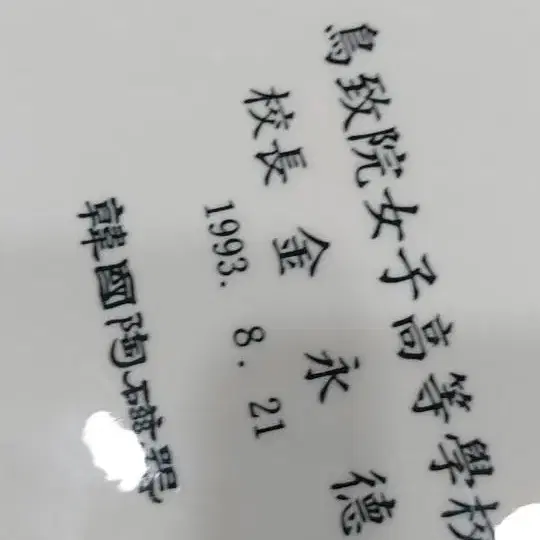 鳥致院女子高等學校
校長 金永德
1993. 8. 21
韓國陶磁器